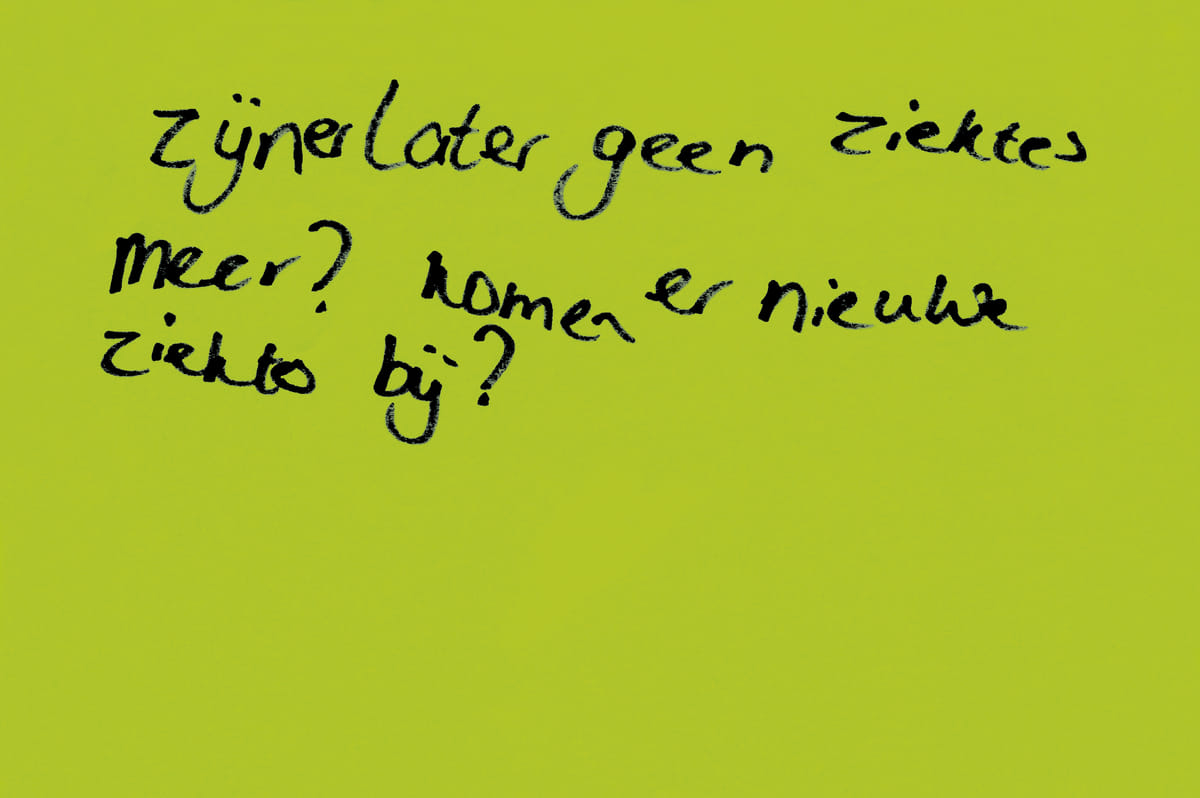 zijn er later geen ziektes
meer? komen er nieuwe
ziektes bij?